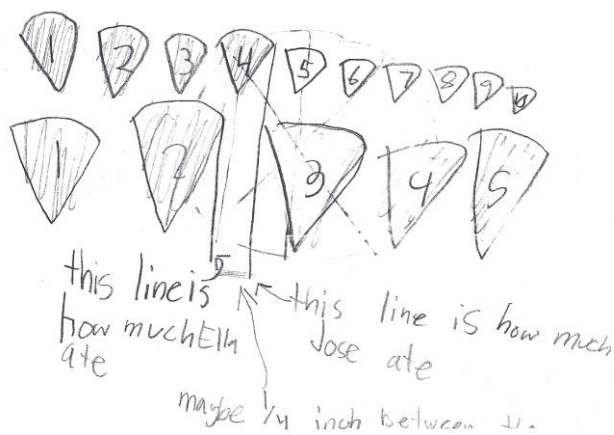 1 2 3 4 5 6 7 8 9 10
1 2 3 4 5
this line is
how much Ella
ate
this line is how much
Jose ate
maybe 1/4 inch between the